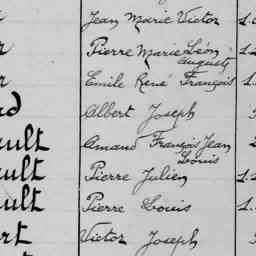 Jean Marie Victor 1.
r Pierre Marie Léon Auguste 1.
r Emile René François 1.
rd Albert Joseph
ault Amand François Jean Louis
ault Pierre Julien 1.
ault Pierre Louis 1.
rt Victor Joseph